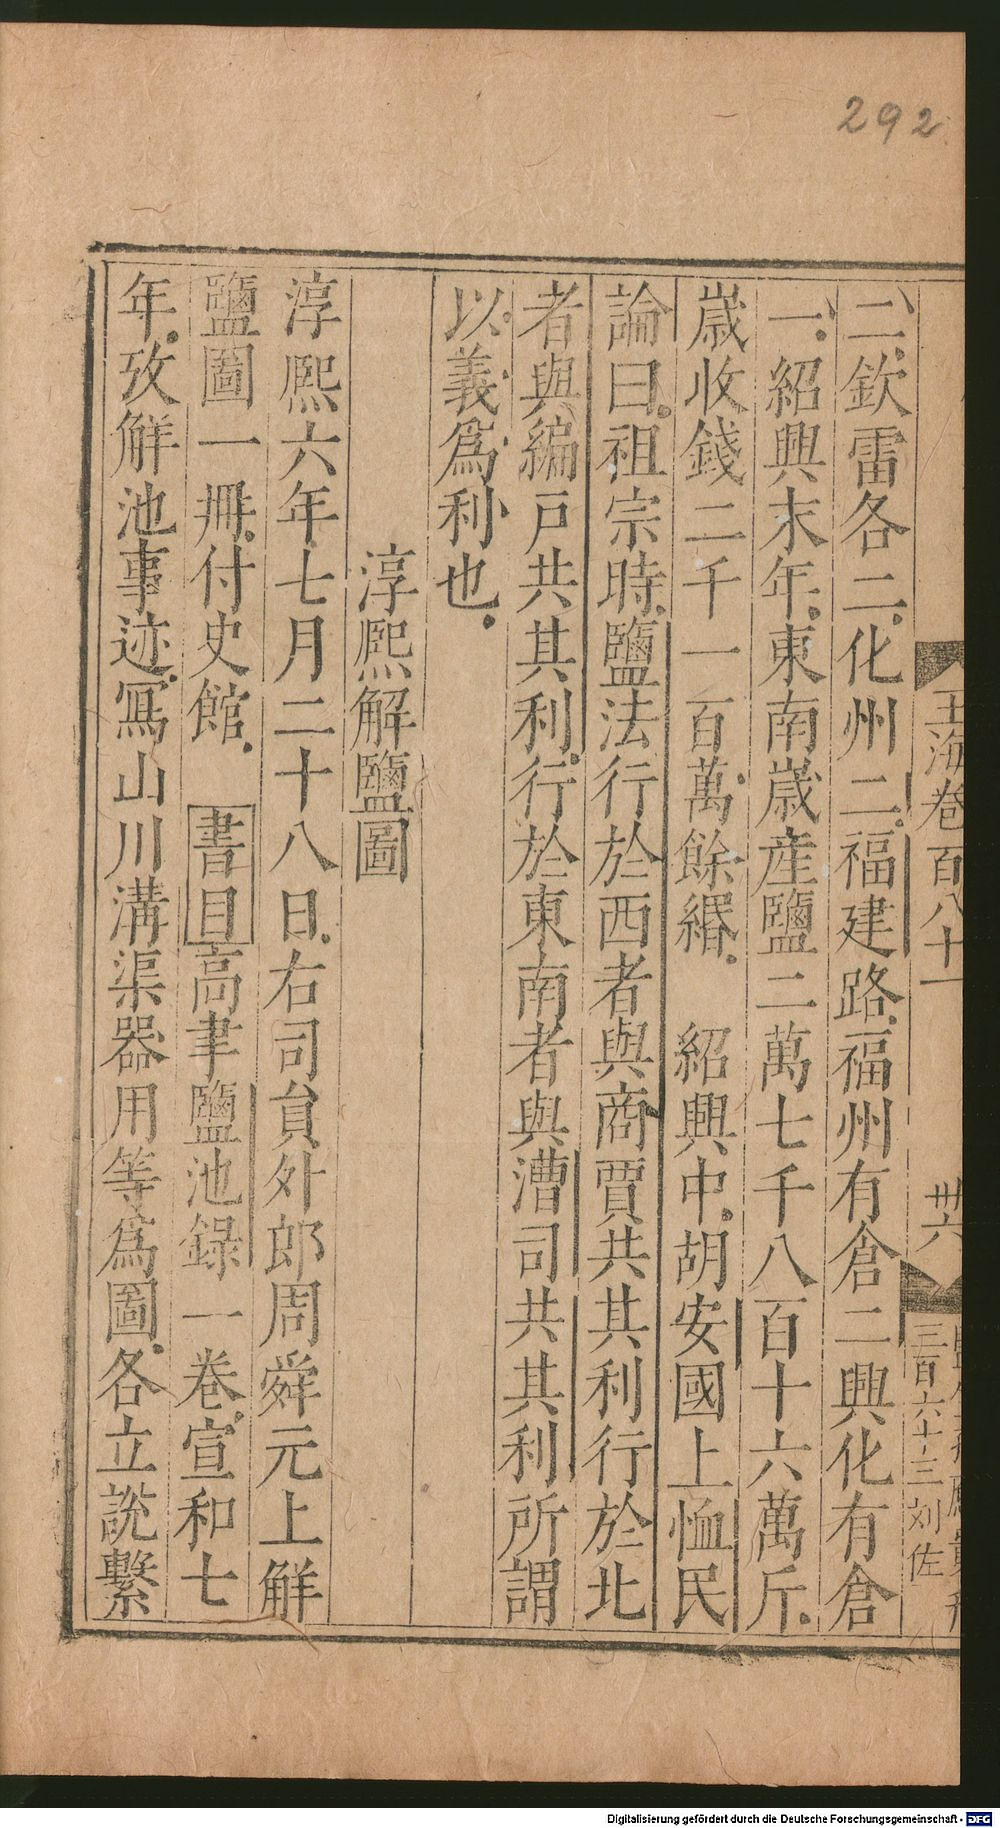 292
玉海卷百八十一
卅六
三百六十三刘佐
二欽雷各二化州二福建路福州有倉二興化有倉
一紹興末年東南歲産鹽二萬七千八百十六萬斤
歲收錢二千一百萬餘緡 紹興中胡安國上恤民
論曰祖宗時鹽法行於西者與商賈共其利行於北
者與編戸共其利行於東南者與漕司共其利所謂
以義爲利也
淳熙解鹽圖
淳熙六年七月二十八日右司貟外郎周舜元上觧
鹽圖一冊付史館 書目高聿鹽池錄一卷宣和七
年攷觧池事迹寫山川溝渠器用等爲圖各立說繫
Digitalisierung gefördert durch die Deutsche Forschungsgemeinschaft - DFG